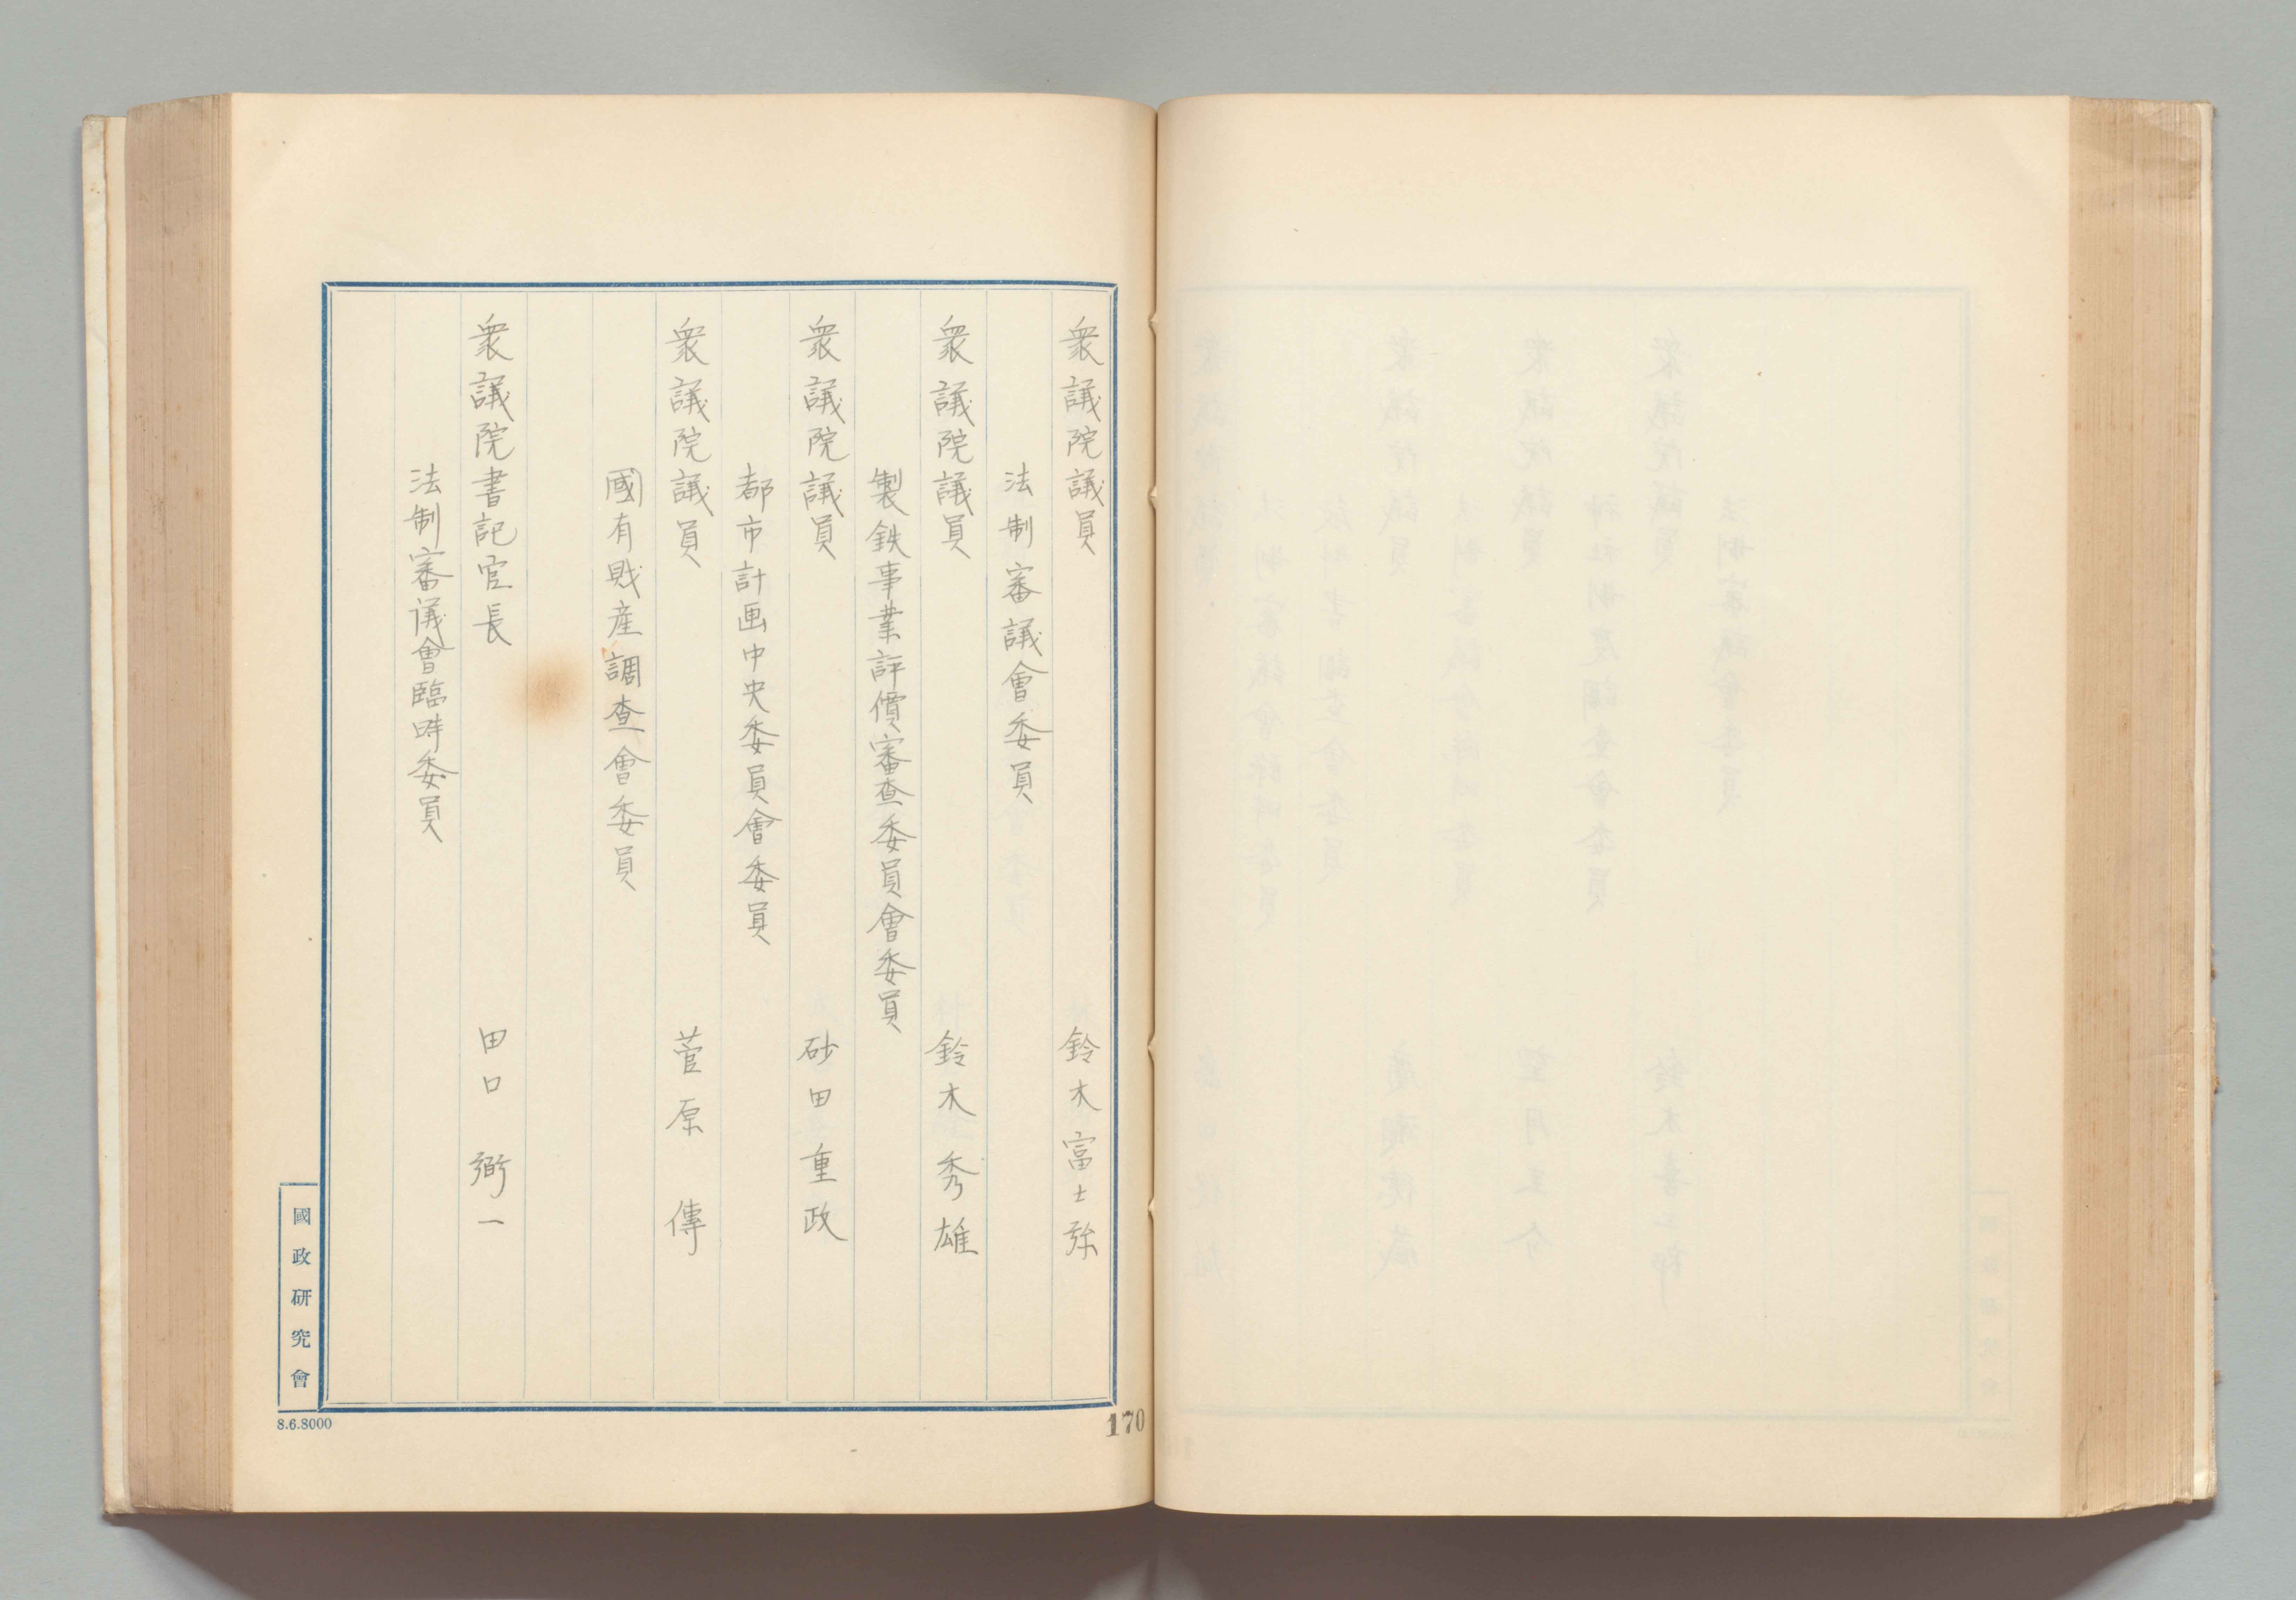 衆議院議員　鈴木富士弥
法制審議會委員
衆議院議員　鈴木秀雄
製鉄事業評價審査委員會委員
衆議院議員　砂田重政
都市計画中央委員會委員
衆議院議員　菅原傳
國有財産調査會委員
衆議院書記官長　田口弼一
法制審議會臨時委員
國政研究會
8.6.8000
170